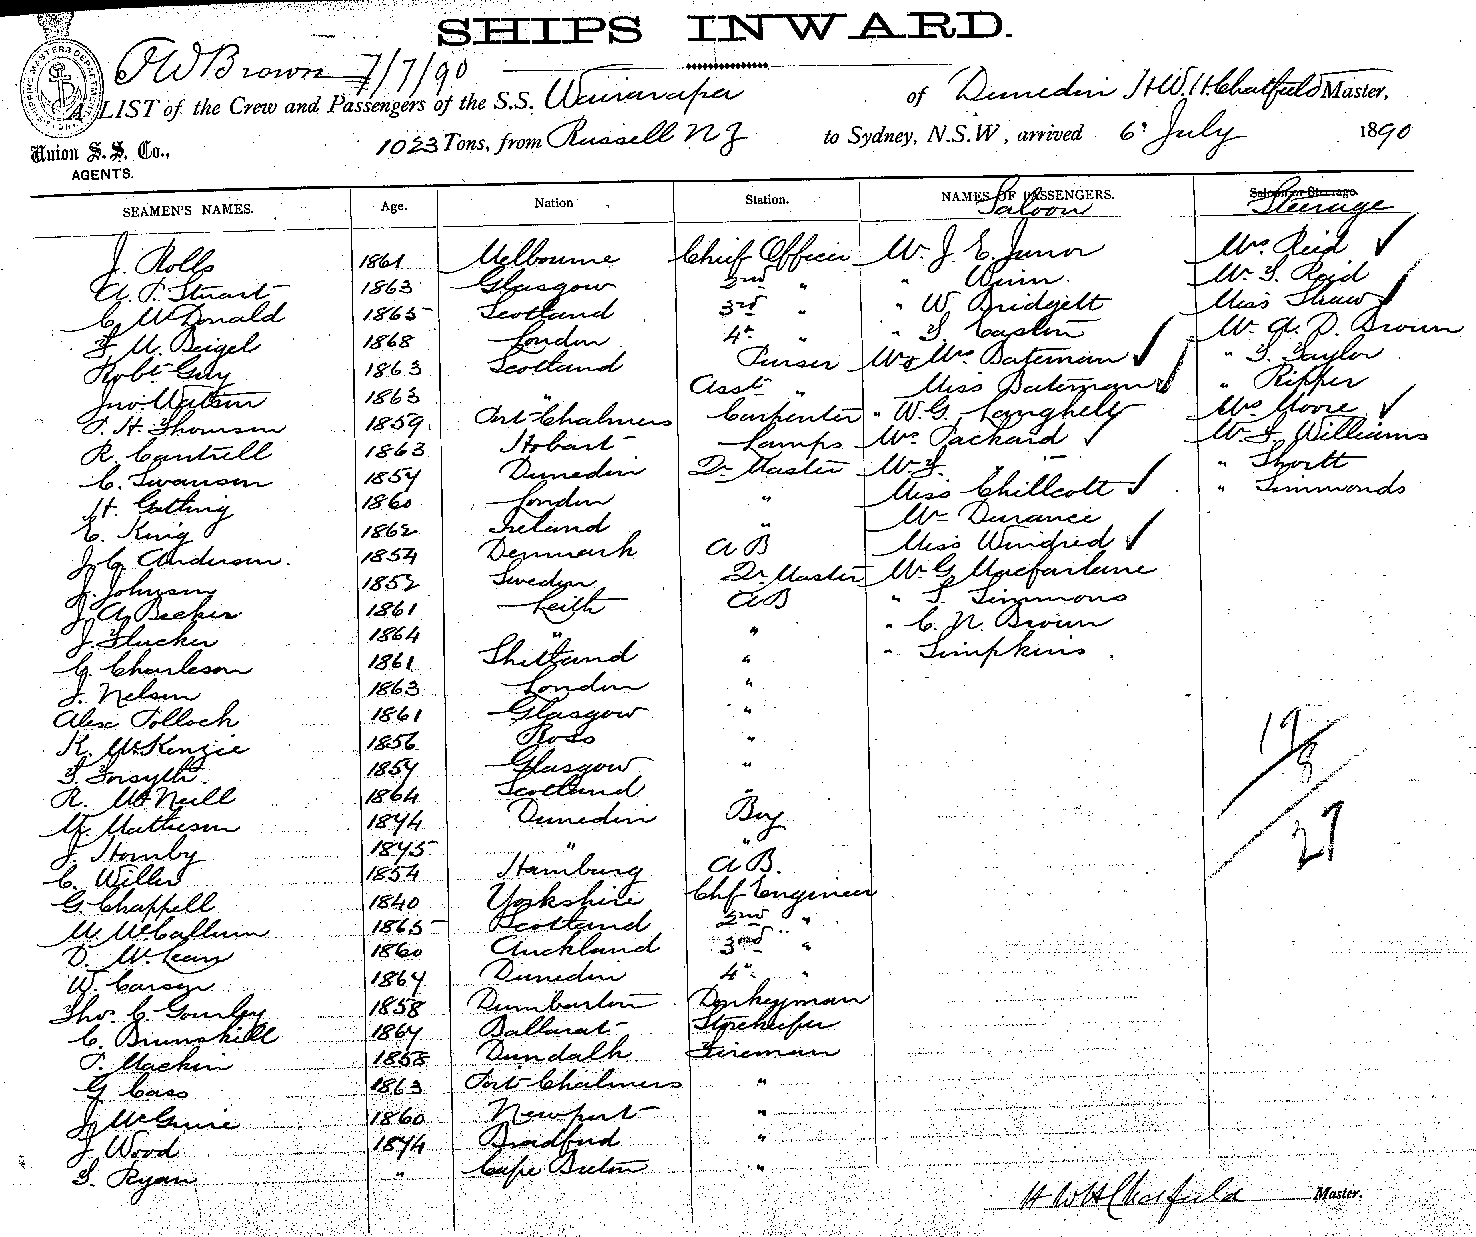 SHIPS INWARD.
J W Brown 7/7/90
A LIST of the Crew and Passengers of the S.S. Wairarapa of Dunedin H.W.H. Chatfield Master,
1023 Tons, from Russell N Z to Sydney, N.S.W, arrived 6th July 1890
Union S. S. Co.,
AGENTS.
SEAMEN'S NAMES. Age. Nation Station. NAMES OF PASSENGERS. Saloon or Steerage.
Saloon Steerage
J. Rolls 1861 Melbourne Chief Officer Mr. J. E. Junor Mrs Reid ✓
A. P. Stuart 1863 Glasgow 2nd " " Winn Mr. T. Reid
C. McDonald 1865 Scotland 3rd " " W. Bridgett Miss Shaw ✓
F. M. Beigel 1868 London 4th " " T. Easton Mr. A. D. Brown
Robt Guy 1863 Scotland Purser Mr & Mrs Bateman ✓ " T. Taylor
Jno. Watson 1863 " Asst " Miss Bateman ✓ " Ripper
P. H. Thomson 1859 Port Chalmers Carpenter " W. G. Langhelt Mrs Moore ✓
R. Cantrell 1863 Hobart Lamps Mrs Packard ✓ Mr. J. Williams
C. Swanson 1854 Dunedin Dr Master Mr. F. " " Shortt
H. Gatting 1860 London " Miss Chillcott ✓ " Simmonds
E. King 1862 Ireland " Mr Durance
J. C. Anderson 1854 Denmark A B Miss Windred ✓
J. Johnson 1852 Sweden Dr Master Mr G. Macfarlane
J. A. Becker 1861 Leith A B " S. Simmons
J. Flucker 1864 " " " C. N. Brown
G. Charleson 1861 Shetland " " Simpkins
J. Nelson 1863 London "
Alex Pollock 1861 Glasgow "
K. McKenzie 1856 Ross "
T. Forsyth 1854 Glasgow "
R. McNeill 1864 Scotland "
M. Matheson 1874 Dunedin Boy
J. Hornby 1875 " "
C. Willer 1854 Hamburg A B.
G. Chappell 1840 Yorkshire Chf Engineer
M. McCallum 1865 Scotland 2nd "
D. McLean 1860 Auckland 3rd "
W. Carson 1864 Dunedin 4th "
Thos. C. Gourley 1858 Dumbarton Donkeyman
C. Brunskill 1864 Ballarat Storekeeper
P. Mackin 1858 Dundalk Fireman
G. Cass 1863 Port Chalmers "
J. McGuire 1860 Newport "
J. Wood 1874 Bradford "
T. Ryan " Cape Breton "
19
8
27
H W H Chatfield Master.